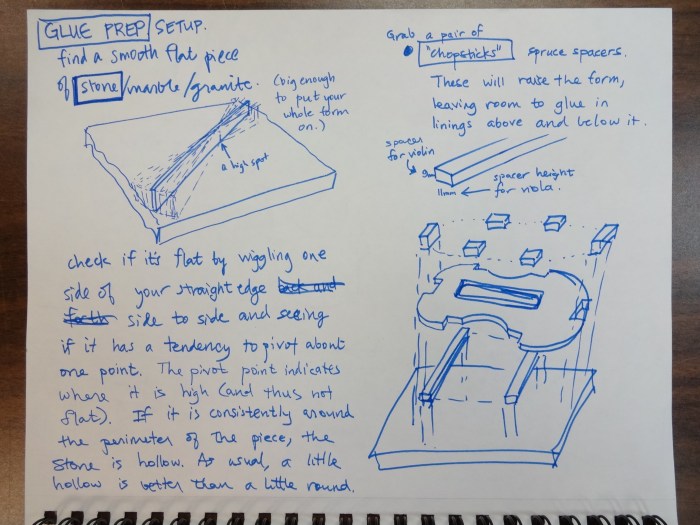 GLUE PREP SETUP.
find a smooth flat piece
of stone/marble/granite.
(big enough
to put your
whole form
on.)
a high spot
check if it's flat by wiggling one
side of your straightedge back and
forth side to side and seeing
if it has a tendency to pivot about
one point. The pivot point indicates
where it is high (and thus not
flat). If it is consistently around
the perimeter of the piece, the
stone is hollow. As usual, a little
hollow is better than a little round.
Grab a pair of
• "chopsticks" spruce spacers.
These will raise the form,
leaving room to glue in
linings above and below it.
spacer
for violin
9mm
11mm
spacer height
for viola.